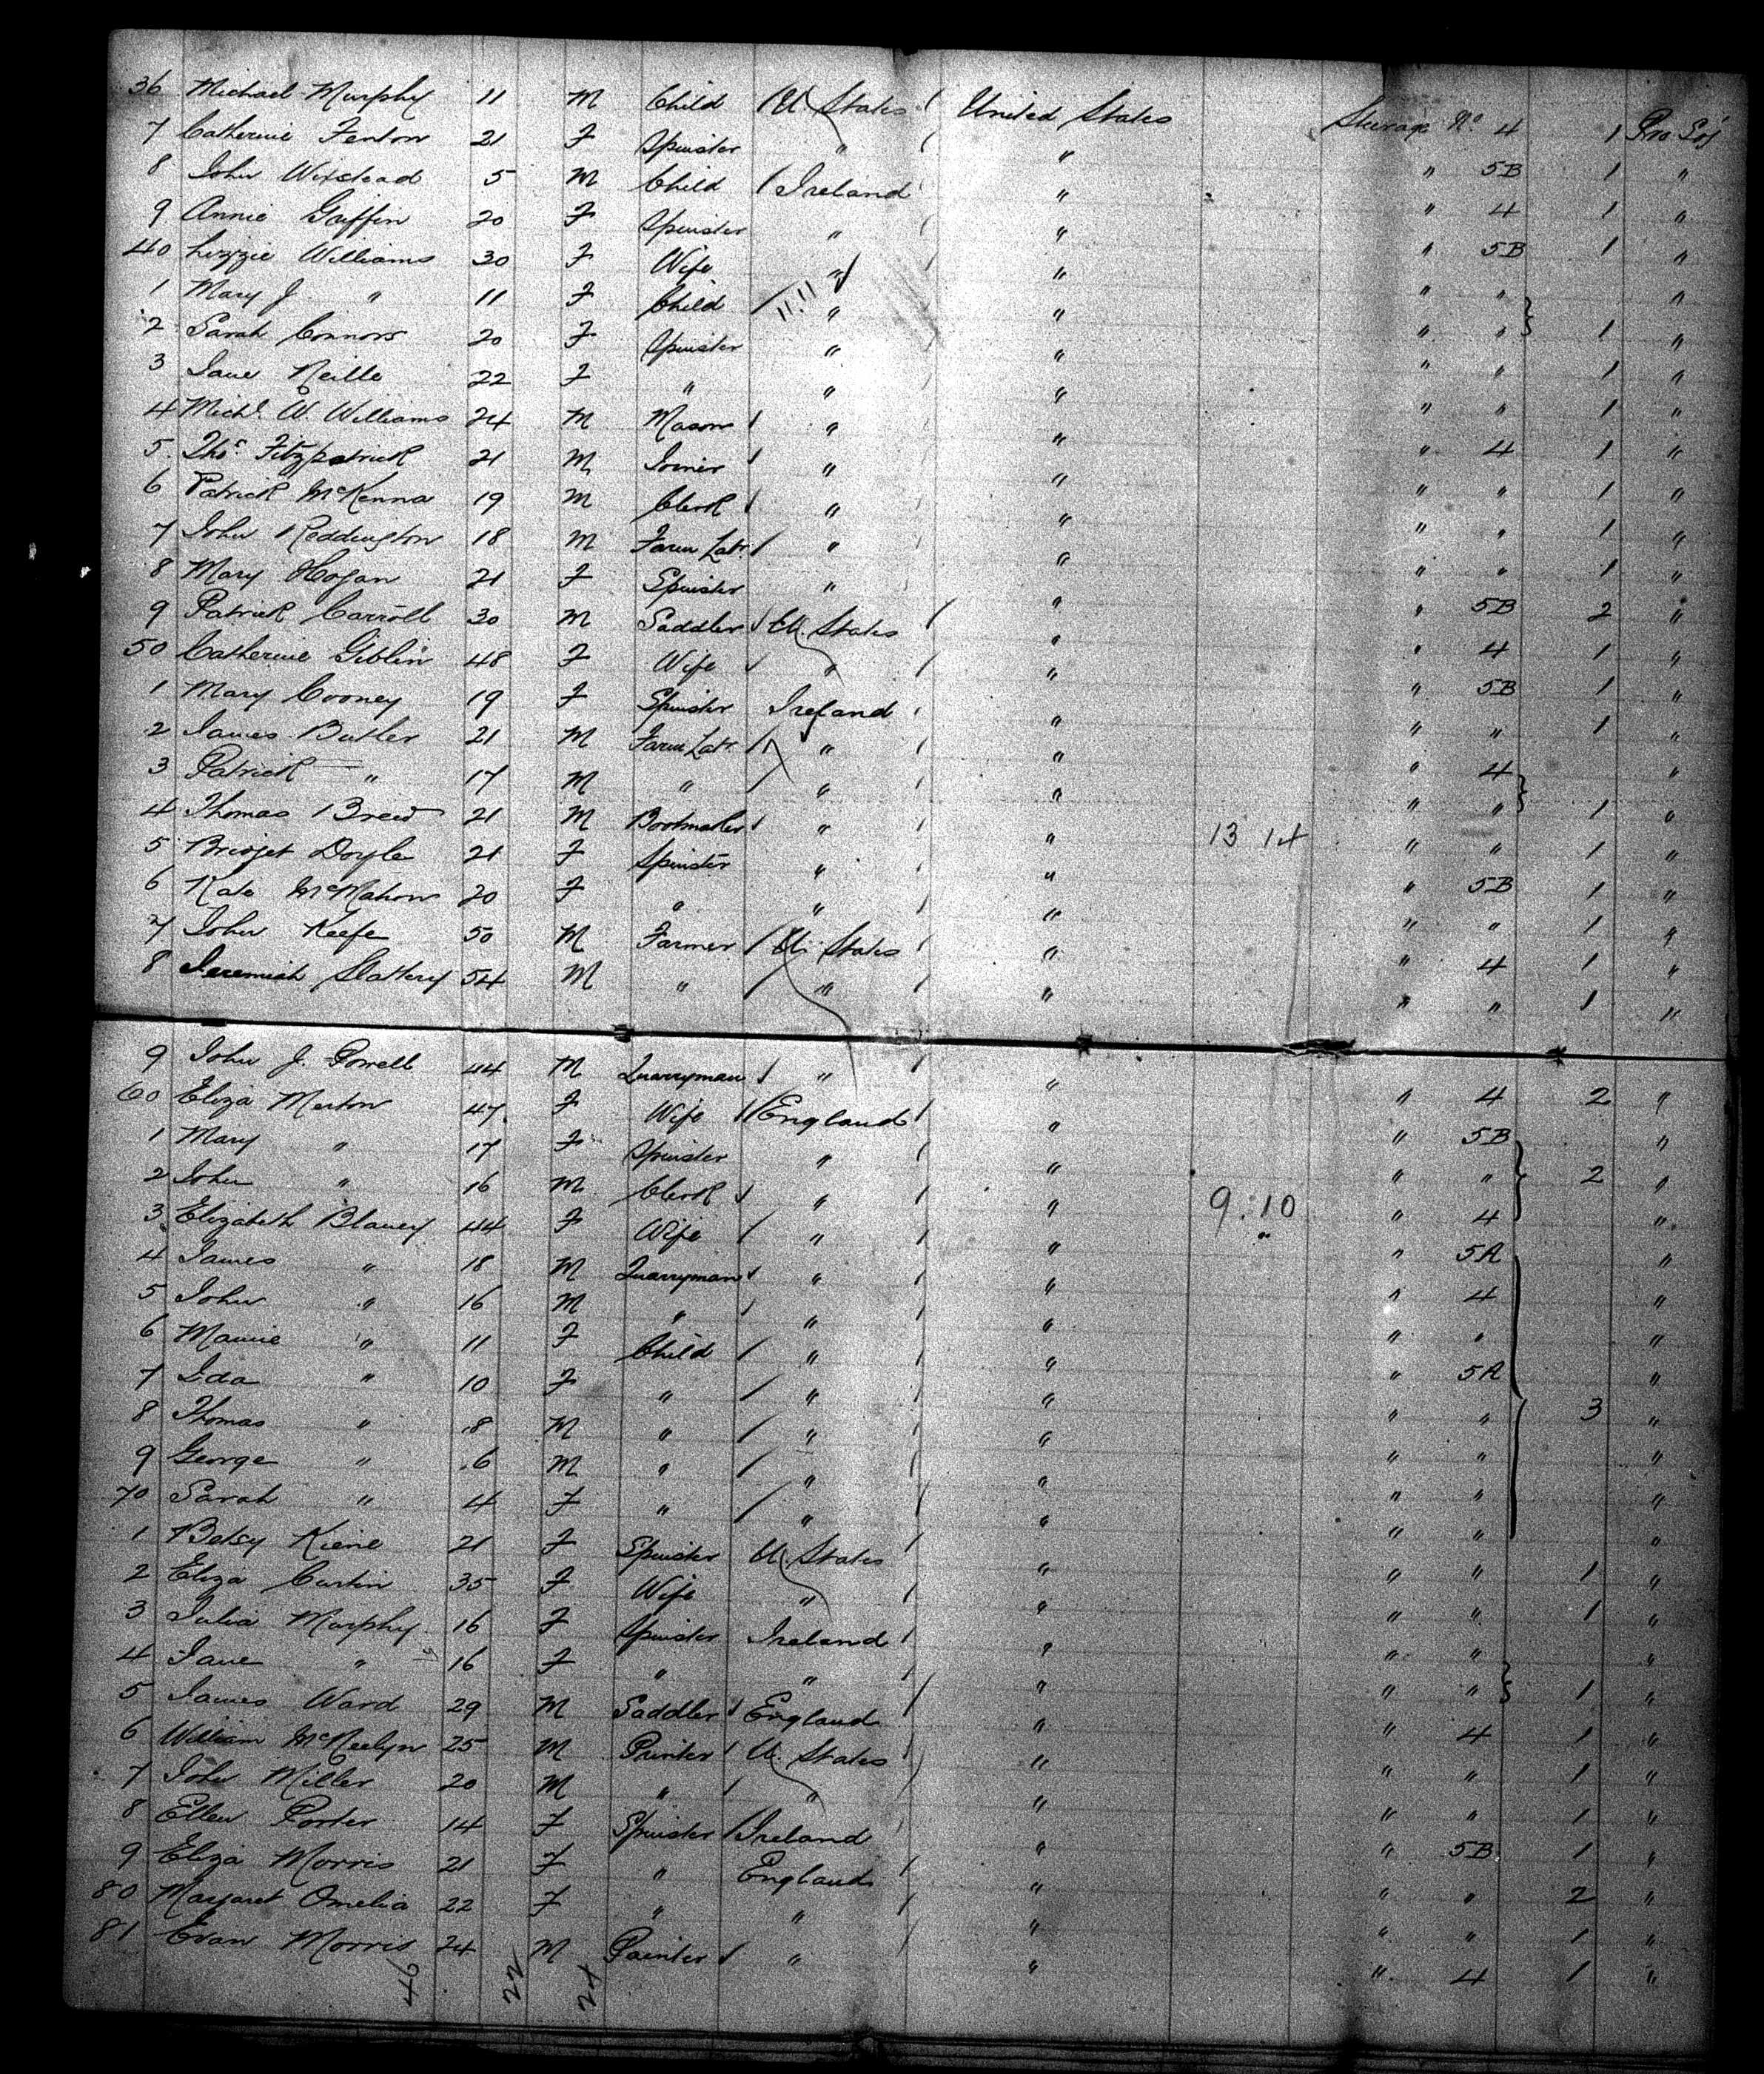 36 Michael Murphy 11 M Child U. States United States Steerage No 4 1 Pro Soj
7 Catherine Fenton 21 F Spinster " " " 5B 1 "
8 John Wixstead 5 M Child Ireland " " 4 1 "
9 Annie Griffin 20 F Spinster " " " 5B 1 "
40 Lizzie Williams 30 F Wife " " " " "
1 Mary J. " 11 F Child 11.11 " " " " 1 "
2 Sarah Connors 20 F Spinster " " " " 1 "
3 Jane Neille 22 F " " " " " 1 "
4 Michl. W. Williams 24 M Mason " " " 4 1 "
5 Thos. Fitzpatrick 21 M Joiner " " " " 1 "
6 Patrick McKenna 19 M Clerk " " " " 1 "
7 John Reddington 18 M Farm Labr. " " " " 1 "
8 Mary Hogan 21 F Spinster " " " 5B 2 "
9 Patrick Carroll 30 M Saddler U. States " " 4 1 "
50 Catherine Giblin 48 F Wife " " " 5B 1 "
1 Mary Cooney 19 F Spinster Ireland " " " 1 "
2 James Butler 21 M Farm Labr. " " " 4 "
3 Patrick " 17 M " " " " " 1 "
4 Thomas Breid 21 M Bootmaker " " 13 14 " " 1 "
5 Bridget Doyle 21 F Spinster " " " 5B 1 "
6 Kate McMahon 20 F " " " " " 1 "
7 John Keefe 50 M Farmer U. States " " 4 1 "
8 Jeremiah Slattery 54 M " " " " " 1 "
9 John J. Powell 44 M Quarryman " " " 4 2 "
60 Eliza Merton 47 F Wife England " " 5B "
1 Mary " 17 F Spinster " " " " 2 "
2 John " 16 M Clerk " " 9.10 " 4 "
3 Elizabeth Blamey 44 F Wife " " " " 5A "
4 James " 18 M Quarryman " " " 4 "
5 John " 16 M " " " " " "
6 Mamie " 11 F Child " " " 5A "
7 Ida " 10 F " " " " " 3 "
8 Thomas " 8 M " " " " " "
9 George " 6 M " " " " " "
70 Sarah " 4 F " " " " " "
1 Betsy Kiene 21 F Spinster U. States " " " 1 "
2 Eliza Curtin 35 F Wife " " " " 1 "
3 Julia Murphy 16 F Spinster Ireland " " " "
4 Jane " 16 F " " " " " 1 "
5 James Ward 29 M Saddler England " " 4 1 "
6 William McNeelyn 25 M Printer U. States " " " 1 "
7 John Miller 20 M " " " " " 1 "
8 Ellen Porter 14 F Spinster Ireland " " 5B 1 "
9 Eliza Morris 21 F " England " " " 2 "
80 Margaret Omelia 22 F " " " " " 1 "
81 Evan Morris 24 M Painter " " " 4 1 "
46 22 24